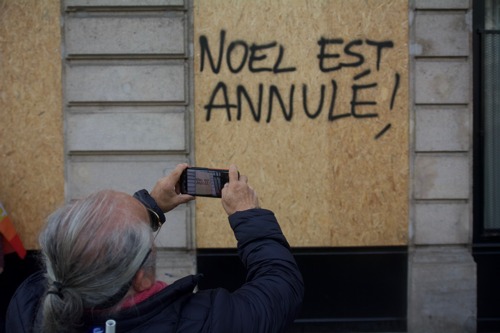 NOEL EST
ANNULÉ!